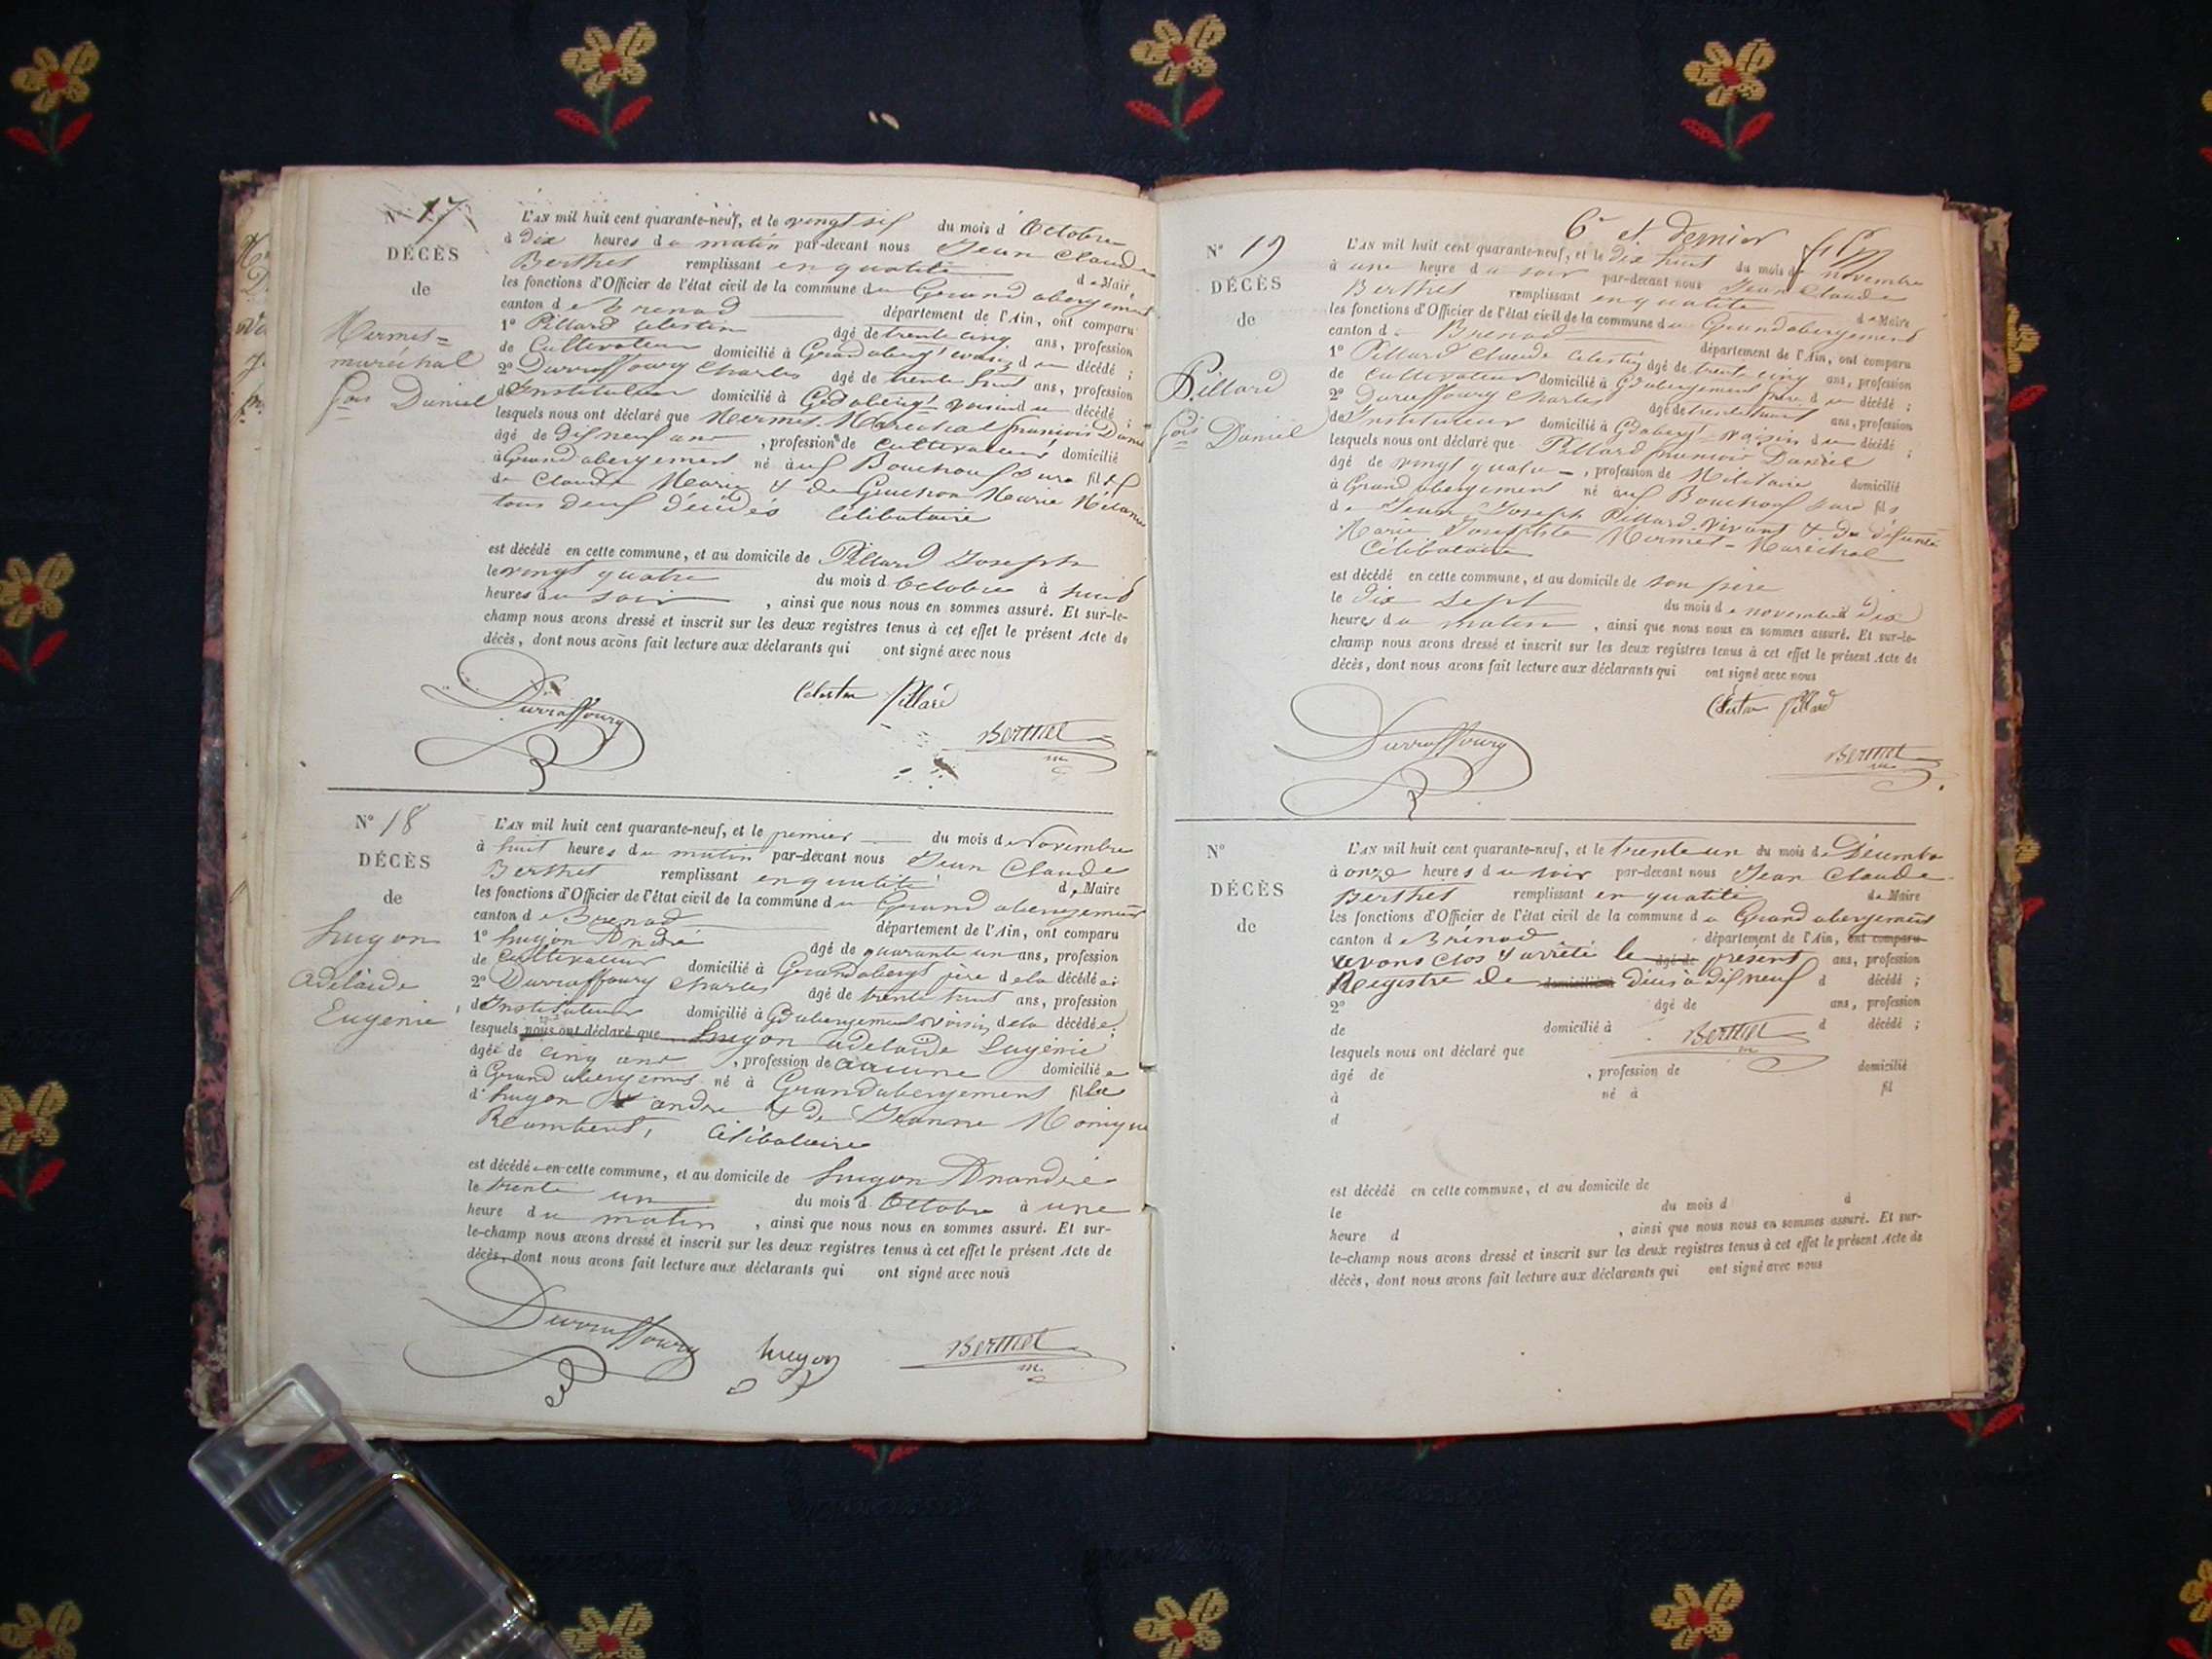 N° 17
DÉCÈS
de
Mermet=
maréchal
fois Daniel
L'AN mil huit cent quarante-neuf, et le vingt six du mois d'Octobre
à dix heures du matin par-devant nous Jean Claude
Berthet remplissant en qualité de Maire
les fonctions d'Officier de l'état civil de la commune du Grand abergement
canton de Brenod département de l'Ain, ont comparu
1° Pillard Celestin âgé de trente cinq ans, profession
de Cultivateur domicilié à Grandaberg.t cousin du décédé ;
2° Durraffourg Charles âgé de trente huit ans, profession
d'Instituteur domicilié à Gd aberg.t voisin du décédé ;
lesquels nous ont déclaré que Mermet-Maréchal francois Daniel
âgé de dix neuf ans , profession de Cultivateur domicilié
à Grand abergement né aux Bouchoux Jura fils
de Claude Marie & de Marie Mélanie
tous deux décédés Célibataire
est décédé en cette commune, et au domicile de Pillard Joseph
le vingt quatre du mois d'Octobre à huit
heures du soir , ainsi que nous nous en sommes assuré. Et sur-le-
champ nous avons dressé et inscrit sur les deux registres tenus à cet effet le présent Acte de
décès, dont nous avons fait lecture aux déclarants qui ont signé avec nous
Durraffourg Celestin Pillard
Berthet
m
N° 18
DÉCÈS
de
Hugon
Adelaïde
Eugénie
L'AN mil huit cent quarante-neuf, et le premier du mois de Novembre
à huit heures du matin par-devant nous Jean Claude
Berthet remplissant en qualité de Maire
les fonctions d'Officier de l'état civil de la commune du Grand abergement
canton de Brenod département de l'Ain, ont comparu
1° hugon André âgé de quarante un ans, profession
de Cultivateur domicilié à Grandabergt père de la décédée
2° Durraffourg Charles âgé de trente huit ans, profession
d'Instituteur domicilié à Gd abergement voisin de la décédée ;
lesquels nous ont déclaré que hugon adelaïde Eugénie
âgée de cinq ans , profession de aucune domiciliée
à Grand abergement né à Grandabergement fille
d'hugon andré & de Jeanne Monique
Célibataire
est décédée en cette commune, et au domicile de hugon
le trente un du mois d'Octobre à une
heure du matin , ainsi que nous nous en sommes assuré. Et sur-
le-champ nous avons dressé et inscrit sur les deux registres tenus à cet effet le présent Acte de
décès, dont nous avons fait lecture aux déclarants qui ont signé avec nous
Durraffourg hugon Berthet
m
6e et dernier
N° 19
DÉCÈS
de
Pillard
fois Daniel
L'AN mil huit cent quarante-neuf, et le dix huit du mois de novembre
à une heure du soir par-devant nous Jean Claude
Berthet remplissant en qualité de Maire
les fonctions d'Officier de l'état civil de la commune du Grandabergement
canton de Brenod département de l'Ain, ont comparu
1° Pillard Claude Celestin âgé de trente cinq ans, profession
de Cultivateur domicilié à Gd abergement frère du décédé ;
2° Duraffourg Charles âgé de trente huit ans, profession
d'Instituteur domicilié à Gd aberg.t voisin du décédé ;
lesquels nous ont déclaré que Pillard francois Daniel
âgé de vingt quatre , profession de Militaire domicilié
à Grand abergement né aux Bouchoux Jura fils
de Jean Joseph Pillard vivant & de défunte
Marie Josephte Mermet-Maréchal
Célibataire
est décédé en cette commune, et au domicile de son père
le dix sept du mois de novembre à dix
heures du matin , ainsi que nous nous en sommes assuré. Et sur-le-
champ nous avons dressé et inscrit sur les deux registres tenus à cet effet le présent Acte de
décès, dont nous avons fait lecture aux déclarants qui ont signé avec nous
Durraffourg Celestin Pillard
Berthet
m
N°
DÉCÈS
de
L'AN mil huit cent quarante-neuf, et le trente un du mois de Décembre
à onze heures du soir par-devant nous Jean Claude
Berthet remplissant en qualité de Maire
les fonctions d'Officier de l'état civil de la commune du Grand abergement
canton de Brénod département de l'Ain, ont comparu
avons clos & arrêté le âgé de présent ans, profession
Registre de domicilié à décès à dix neuf d décédé ;
2° âgé de ans, profession
de domicilié à Berthet d décédé ;
lesquels nous ont déclaré que m
âgé de , profession de domicilié
à né à fil
d
est décédé en cette commune, et au domicile de
le du mois d à
heure d , ainsi que nous nous en sommes assuré. Et sur-
le-champ nous avons dressé et inscrit sur les deux registres tenus à cet effet le présent Acte de
décès, dont nous avons fait lecture aux déclarants qui ont signé avec nous